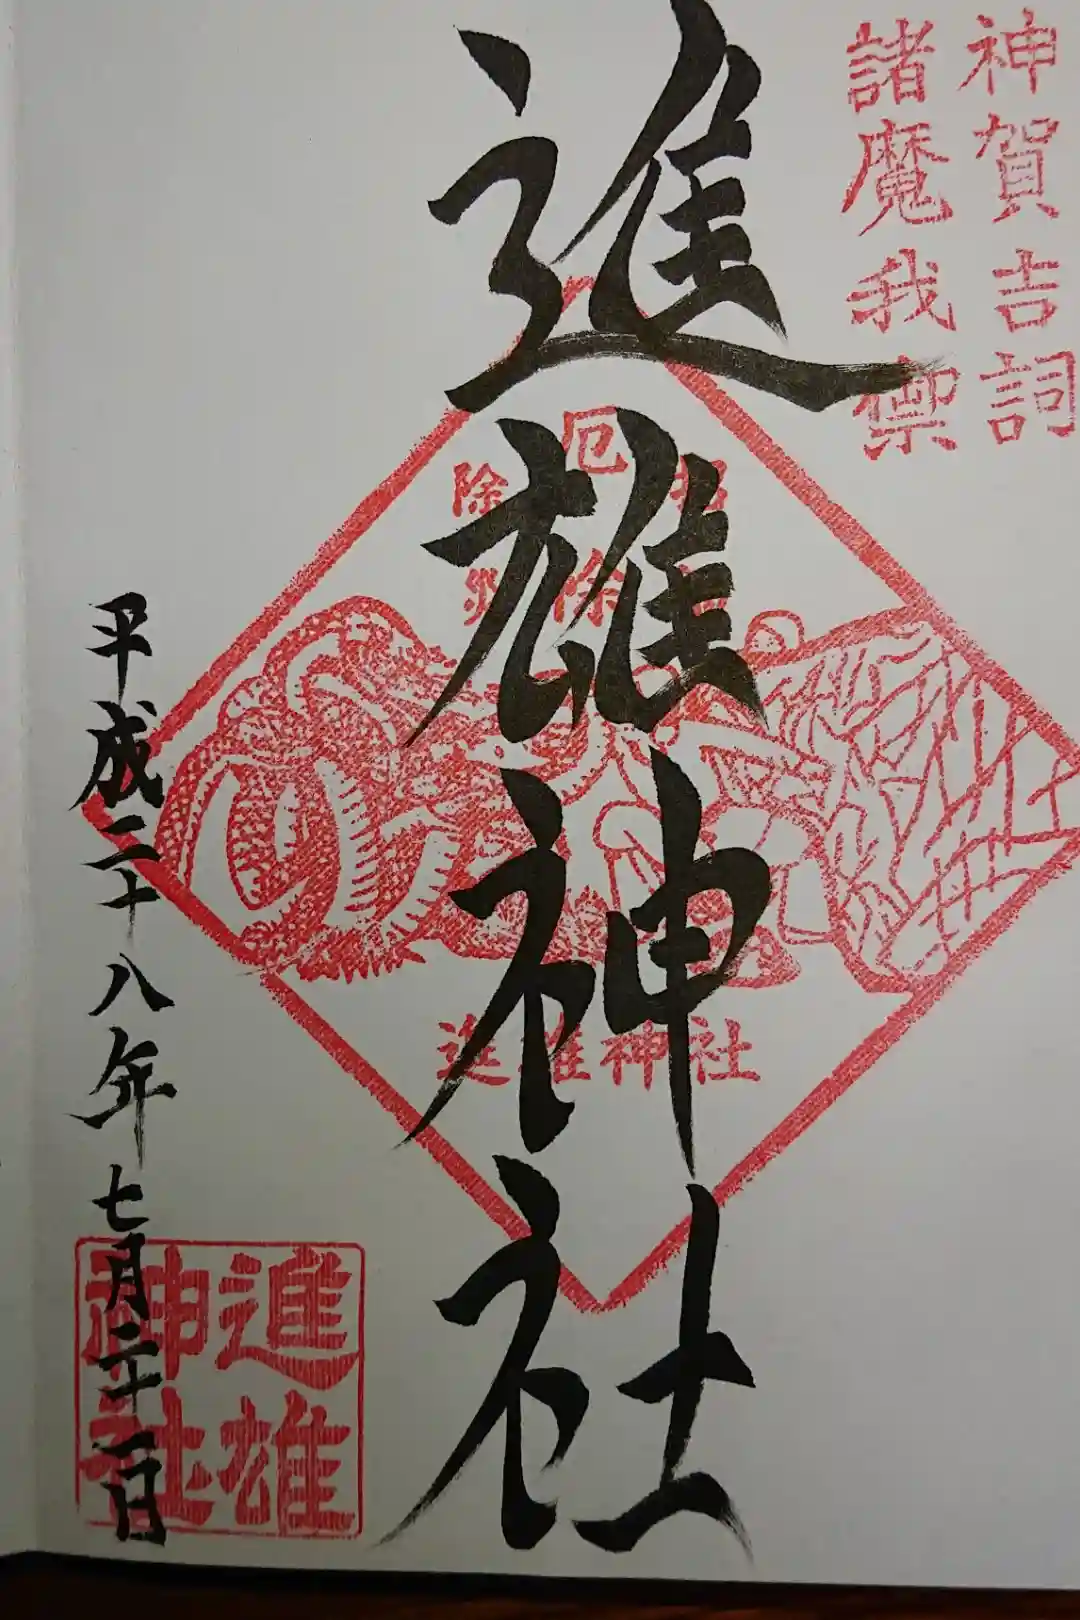 神賀吉詞
諸魔我禦
進雄神社
厄除
除災
進雄神社
平成二十八年七月二十一日
進雄
神社